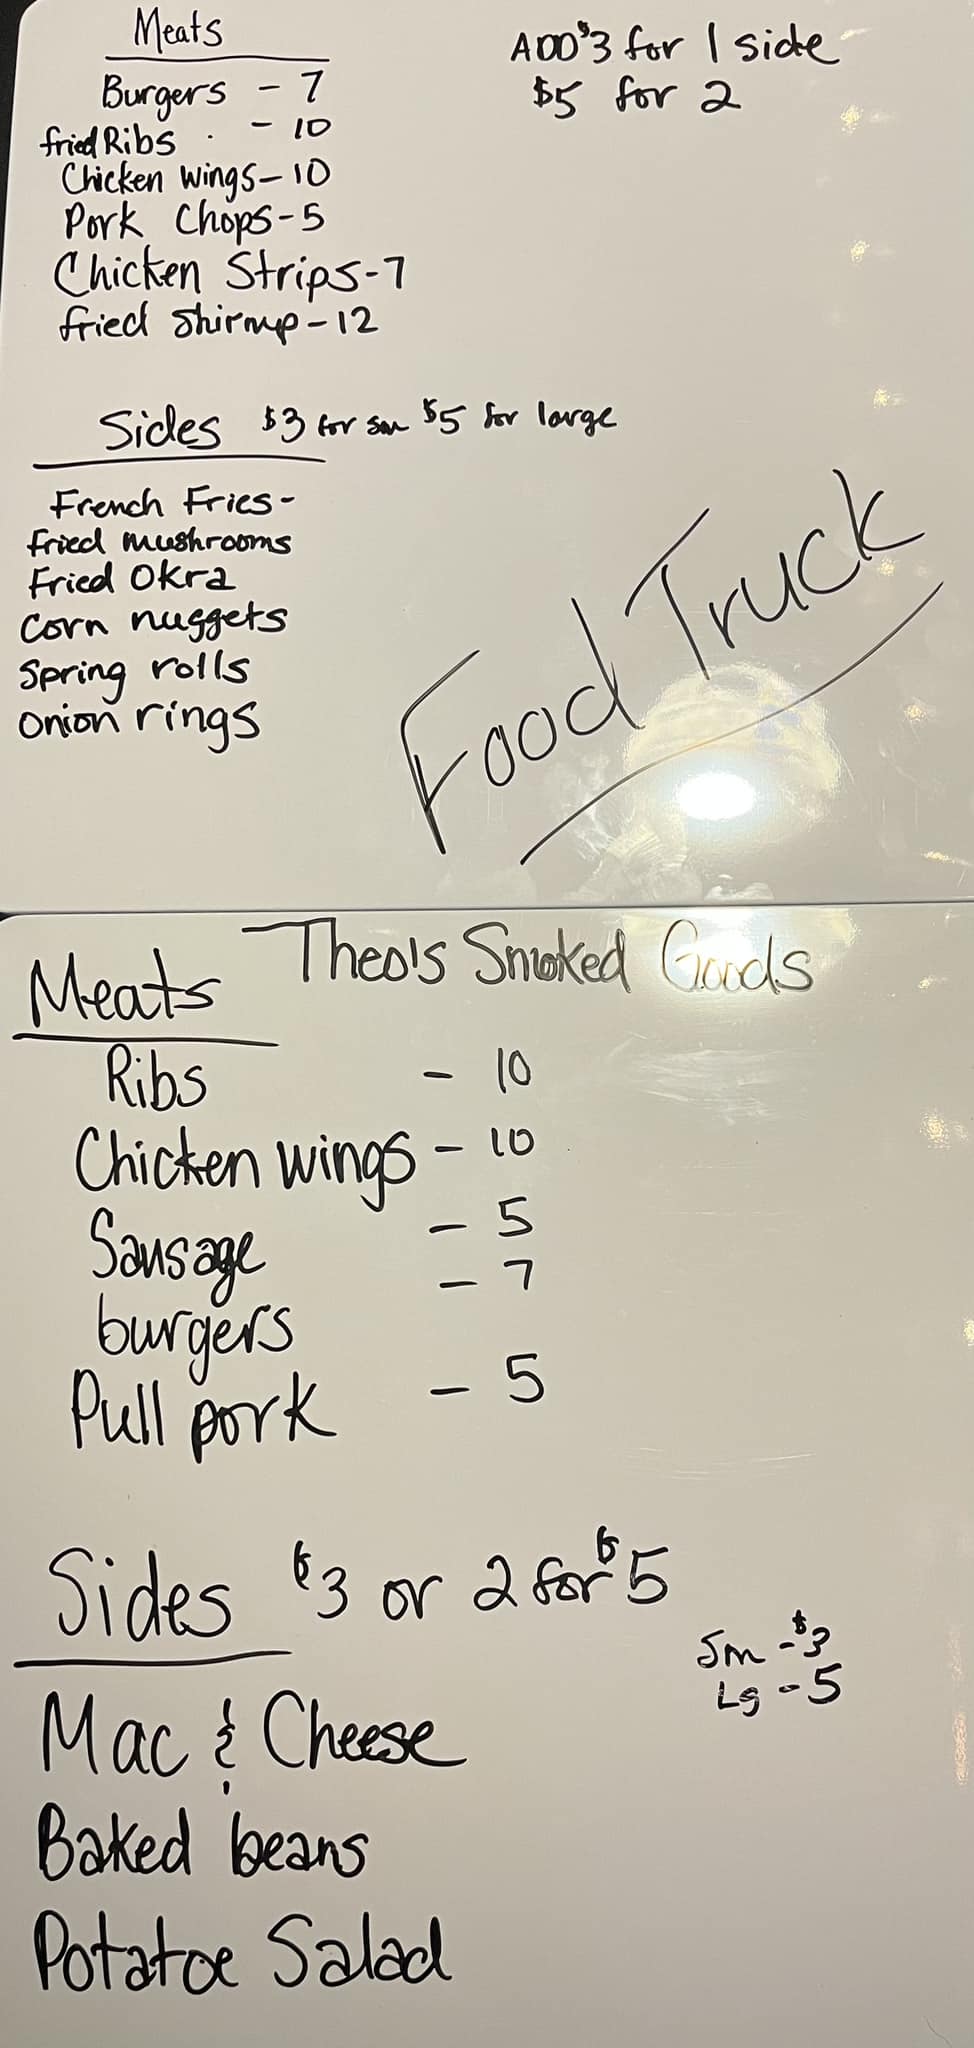 Meats
ADD $3 for 1 side
$5 for 2
Burgers - 7
fried Ribs - 10
Chicken wings - 10
Pork Chops - 5
Chicken Strips - 7
fried Shirmp - 12
Sides $3 for sm $5 for large
French Fries -
Fried mushrooms
Fried Okra
Corn nuggets
Spring rolls
Onion rings
Food Truck
Theo's Smoked Goods
Meats
Ribs - 10
Chicken wings - 10
Sausage - 5
burgers - 7
Pull pork - 5
Sides $3 or 2 for $5
Sm - $3
Lg - 5
Mac & Cheese
Baked beans
Potatoe Salad